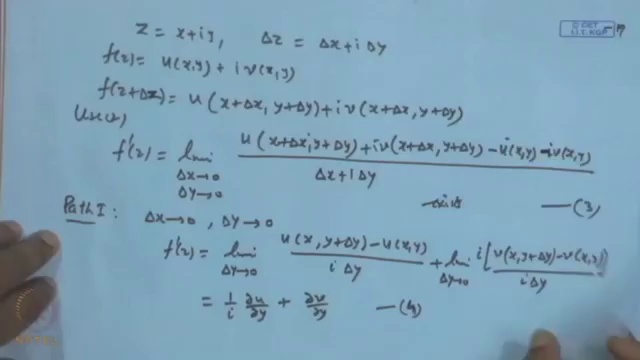 Z = x+iy, Δz = Δx+iΔy
f(z) = u(x,y) + i v(x,y)
f(z+Δz) = u(x+Δx, y+Δy) + i v(x+Δx, y+Δy)
f'(z) = lim Δx→0 Δy→0 u(x+Δx, y+Δy) + iv(x+Δx, y+Δy) − u(x,y) − iv(x,y) / Δx+iΔy
exists —(3)
Path I: Δx→0, Δy→0
f'(z) = lim Δy→0 u(x, y+Δy) − u(x,y) / iΔy + lim Δy→0 i[v(x, y+Δy) − v(x,y)] / iΔy
= 1/i ∂u/∂y + ∂v/∂y —(4)